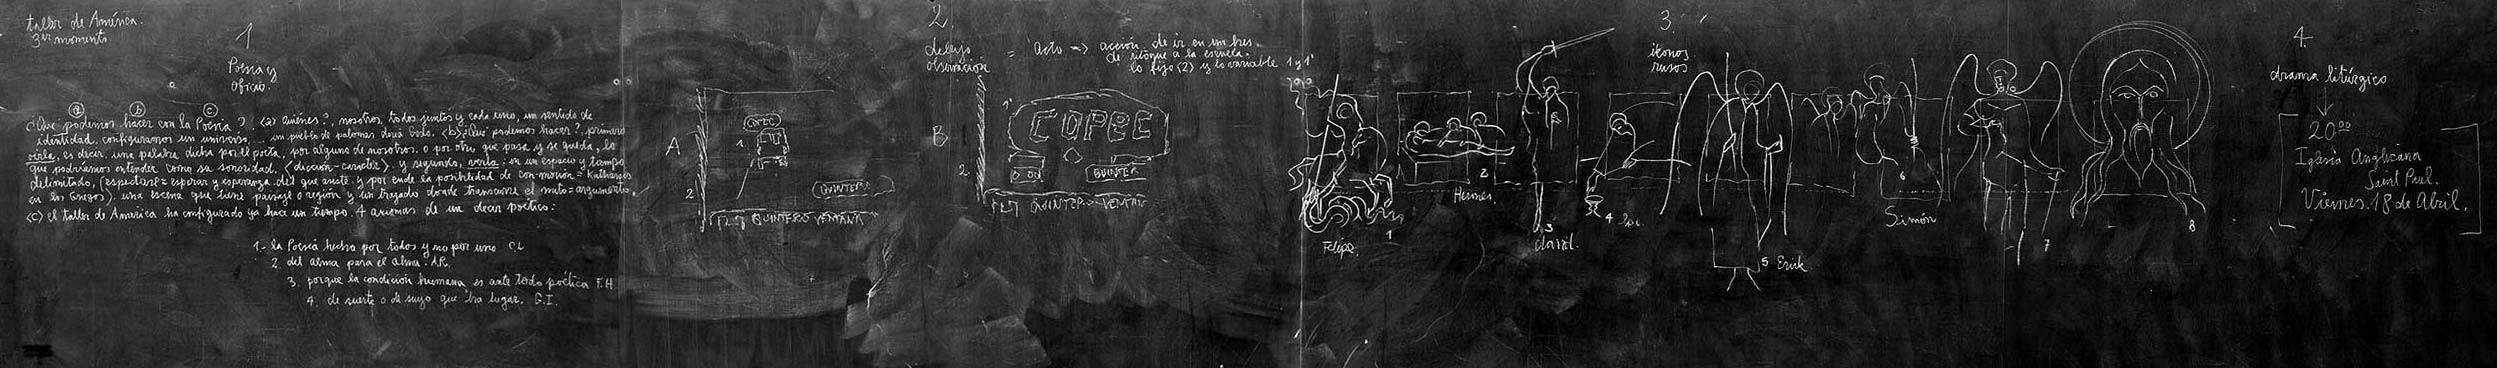 taller de América.
3er momento.
1
Poesía y
oficio.
a b c
¿Qué podemos hacer con la Poesía?. <a> quiénes?, nosotros, todos juntos y cada uno, un sentido de
identidad. configuramos un universo,... un pueblo de palomas doná boda. <b> ¿Qué podemos hacer?, primero
oírla, es decir, una palabra dicha por el poeta, por alguno de nosotros, o por otro que pasa y se queda, lo
que podríamos entender como su sonoridad. <dicción-carácter>. y segundo, verla: en un espacio y tiempo
delimitado, (espectare = esperar y esperanza del que asiste y por ende la posibilidad de con-moción = Katharsis
en los Griegos). una escena que tiene paisaje o región y un trazado donde transcurre el mito = argumento.
<c> el taller de América ha configurado ya hace un tiempo. 4 axiomas de un decir poético:
1.- la Poesía hecha por todos y no por uno C.L
2. del alma para el alma. A.R.
3. porque la condición humana es ante todo poética F.H
4. de suerte o de suyo que ha lugar. G.I.
2.
dibujo
observación = acto => acción de ir en un bus.
de retorque a la escuela.
lo fijo <2> y lo variable 1 y 1'
A
COPEC
1.
2
QUINTERO
QUINTERO VENTANA
B
1'
COPEC
2.
QUINTER
QUINTERO - VENTAN
3.
íkonos
rusos
1
Felipe.
2
Hermes
3
david.
4
5 Erik
6
Simón
7
8
4.
drama litúrgico
20:00
Iglesia Anglicana
Saint Paul.
Viernes. 18 de Abril.